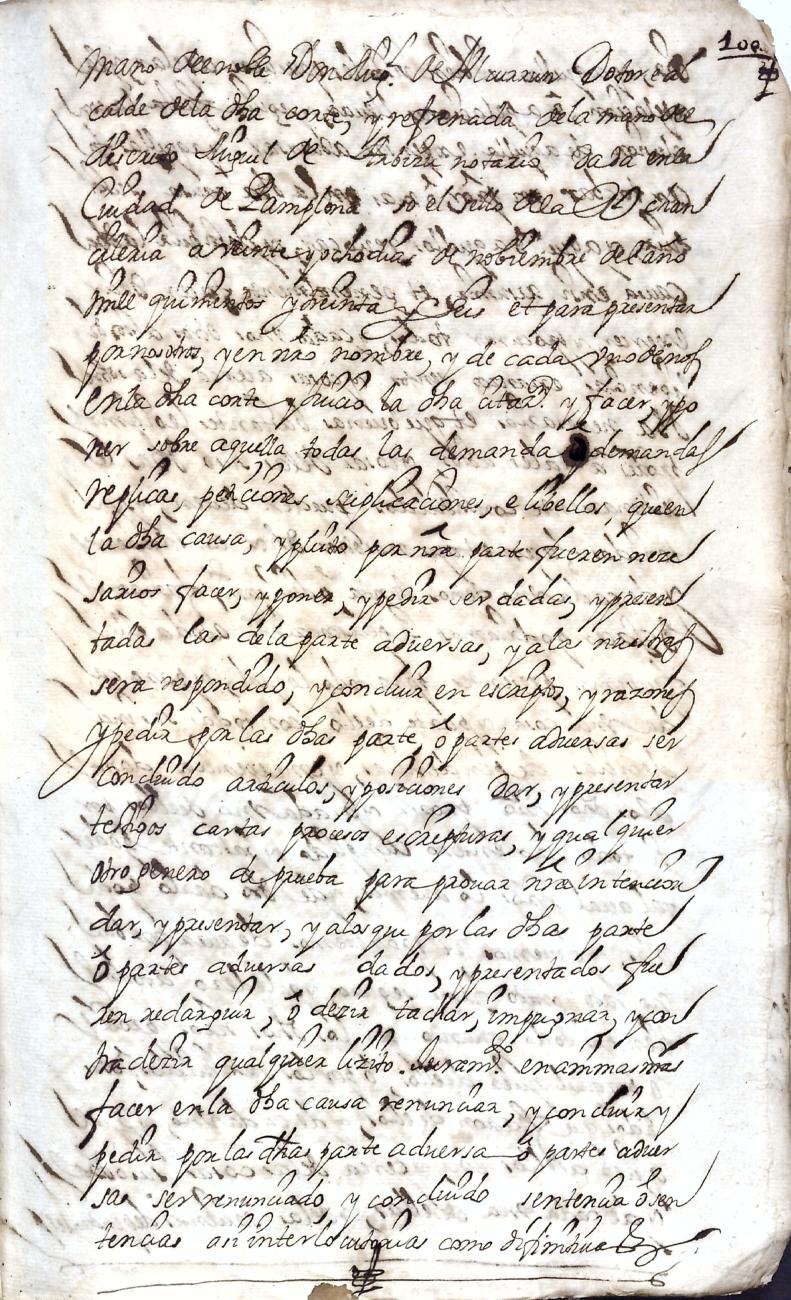 100
mano del noble Don Mig.l de Doctor al
calde dela dha corte, y refrenada dela mano del
discreto Miguel de notario dada enla
Ciudad de Pamplona so el sillo dela chan
cileria a veinte y ocho dias de nobiembre del año
mill quinientos y treinta y seis et para presentar
por nosotros, y en nro nombre, y de cada uno de nos
enla dha corte y juicio la dha citaz.n y facer, y po
ner sobre aquella todas las demanda o demandas
replicas, peticiones suplicaciones, e libellos, que en
la dha causa, y pleito por nra parte fueren nece
sarios facer, y poner, y pedir ser dadas, y presen
tadas las dela parte adversas, y a las nuestras
sera respondido, y concluir en escriptos, y razones
y pedir por las dhas parte, ó partes adversas ser
concluido articulos, y posiciones dar, y presentar
testigos cartas procesos escripturas, y qualquier
otro genero de prueba para provar nra intencion
dar, y presentar, y a los que por las dhas parte
ó partes adversas dados, y presentados fue
ren redarguir, ó dezir tachar, impugnar, y con
tradezir qualquier lizito Juram.to en animas nras
facer en la dha causa renunciar, y concluir y
pedir por las dhas parte adversa ó partes adver
sas ser renunciado, y concluido sentencia ó sen
tencias asi interlocutorias como difinitiva